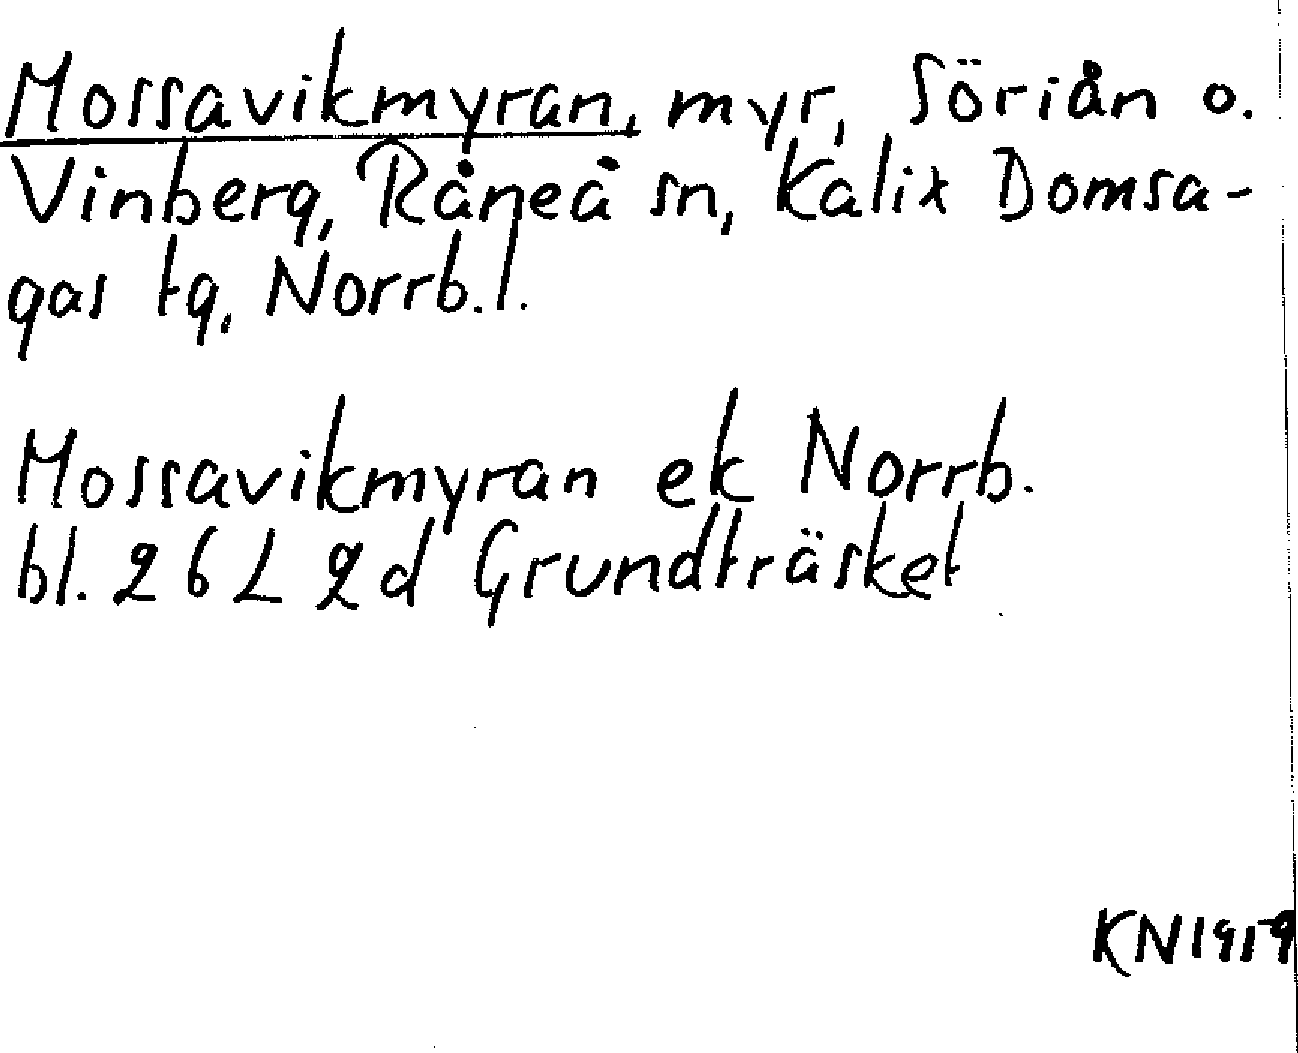 Mossavikmyran, myr, Söriån o.
Vinberg, Råneå sn, Kalix Domsa-
gas tg, Norrb. l.
Mossavikmyran ek Norrb.
bl. 26 L 2d Grundträsket
KN1959